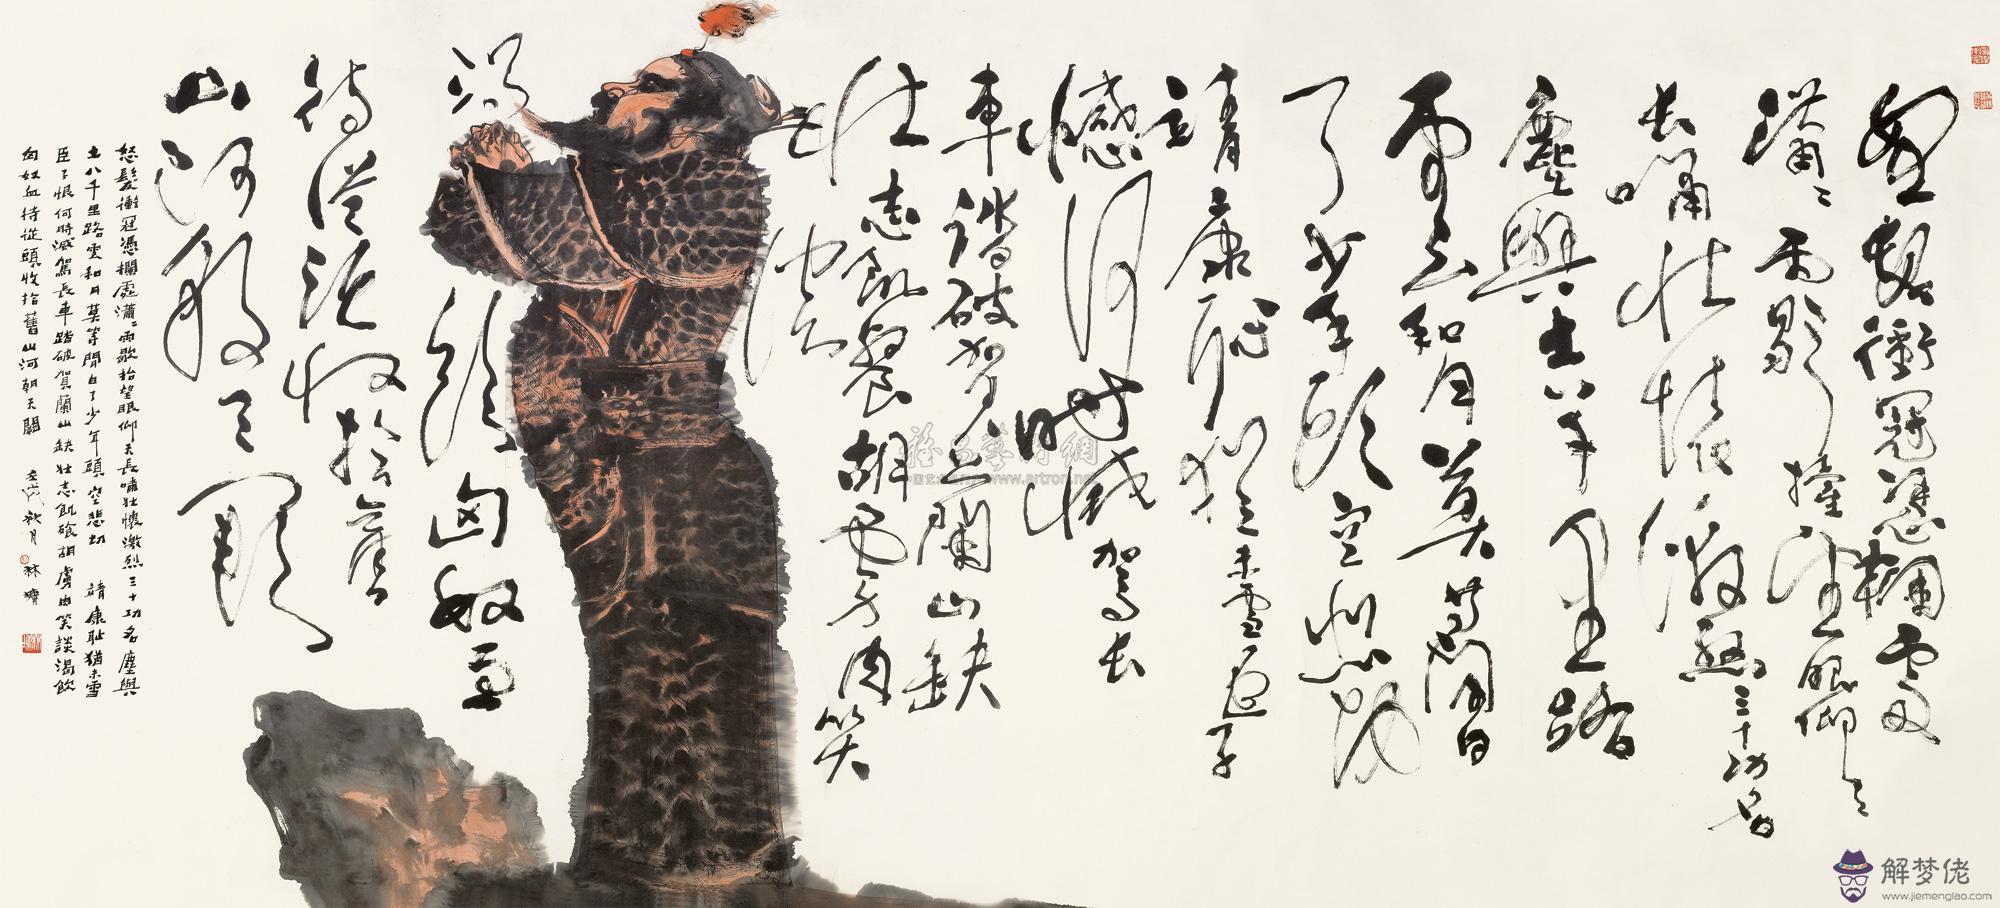 怒髮衝冠憑欄處
瀟〻雨歇擡望眼仰天
長嘯壯懷激烈三十功名
塵與土八千里路
雲和月莫等閒白
了少年頭空悲切
靖康恥猶未雪臣子
憾何時滅駕長
車踏破賀蘭山缺
壯志飢餐胡虜肉笑
渴飲匈奴血
待從頭收拾舊
山河朝天闕
怒髮衝冠憑欄處瀟〻雨歇抬望眼仰天長嘯壯懷激烈三十功名塵與
土八千里路雲和月莫等閒白了少年頭空悲切 靖康恥猶未雪
臣子恨何時滅駕長車踏破賀蘭山缺壯志飢餐胡虜肉笑談渴飲
匈奴血待從頭收拾舊山河朝天闕 壬戌秋月 林墉
www.artron.net
解梦佬
www.jiemenglao.com